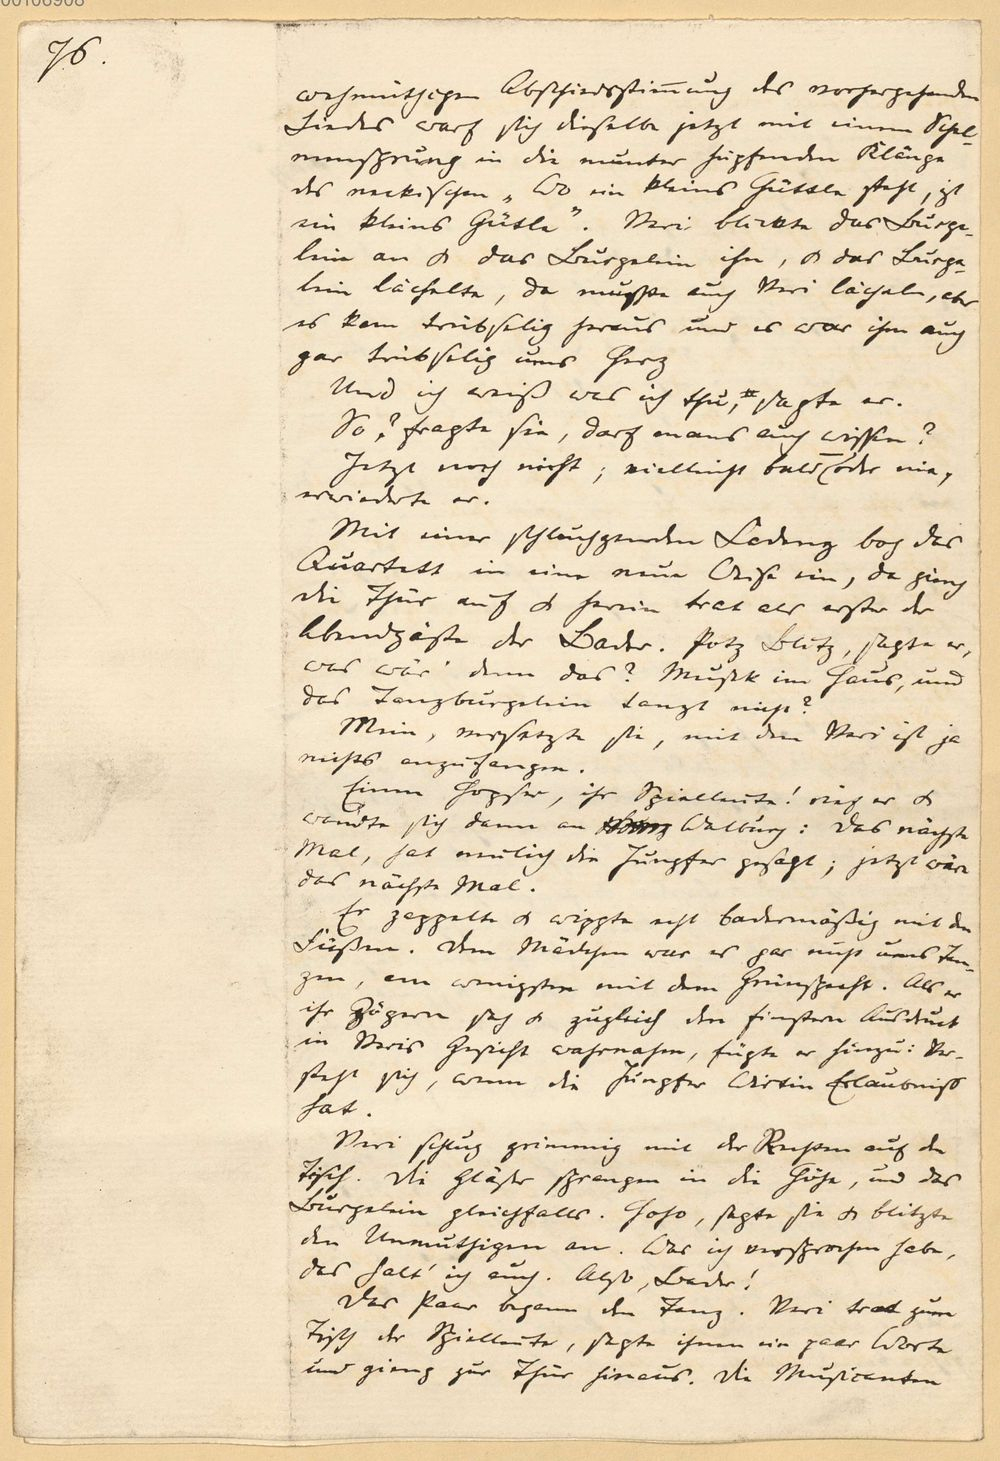 00106908
76.
wehmüthigen Abschiedsstim̅ung des vorhergehenden
Liedes warf sich dieselbe jetzt mit einem Schel-
mensprung in die munter hüpfenden Klänge
des neckischen „Wo ein kleins Hüttle steht, ist
ein kleins Gütle". Veri blickte das Burge-
lein an & das Burgelein ihn, & das Burge-
lein lächelte, da mußte auch Veri lächeln, aber
es kam trübselig heraus und es war ihm auch
gar trübselig ums Herz
Und ich weiß was ich thu, sagte er.
So? fragte sie, darf mans auch wissen?
Jetzt noch nicht; vielleicht bald oder nie,
erwiederte er.
Mit einer schluchzenden Cadenz bog das
Quartett in eine neue Weise ein, da gieng
die Thür auf & herein trat als erster der
Abendgäste der Bader. Potz Blitz, sagte er,
was wär' denn das? Musik im Haus, und
das Tanzburgelein tanzt nicht?
Mein, versetzte sie, mit dem Veri ist ja
nichts anzufangen.
Einen Hopser, ihr Spielleute! rief er &
wandte sich dann an Walburg: Das nächste
Mal, hat neulich die Jungfer gesagt; jetzt wäre
das nächste Mal.
Er zappelte & wippte echt badermäßig mit den
Füßen. Dem Mädchen war es gar nicht ums Tan-
zen, am wenigsten mit dem Grünspecht. Als er
ihr Zögern sah & zugleich den finstern Ausdruck
in Veris Gesicht wahrnahm, fügte er hinzu: Ver-
steht sich, wenn die Jungfer Wirtin Erlaubniß
hat.
Veri schlug grimmig mit der Rechten auf den
Tisch. Die Gläser sprangen in die Höhe, und das
Burgelein gleichfalls. Hoho, sagte sie & blitzte
den Unmuthigen an. Was ich versprochen habe,
das halt' ich auch. Also, Bader!
Das Paar begann den Tanz. Veri trat zum
Tisch der Spielleute, sagte ihnen ein paar Worte
und gieng zur Thür hinaus. Die Musicanten